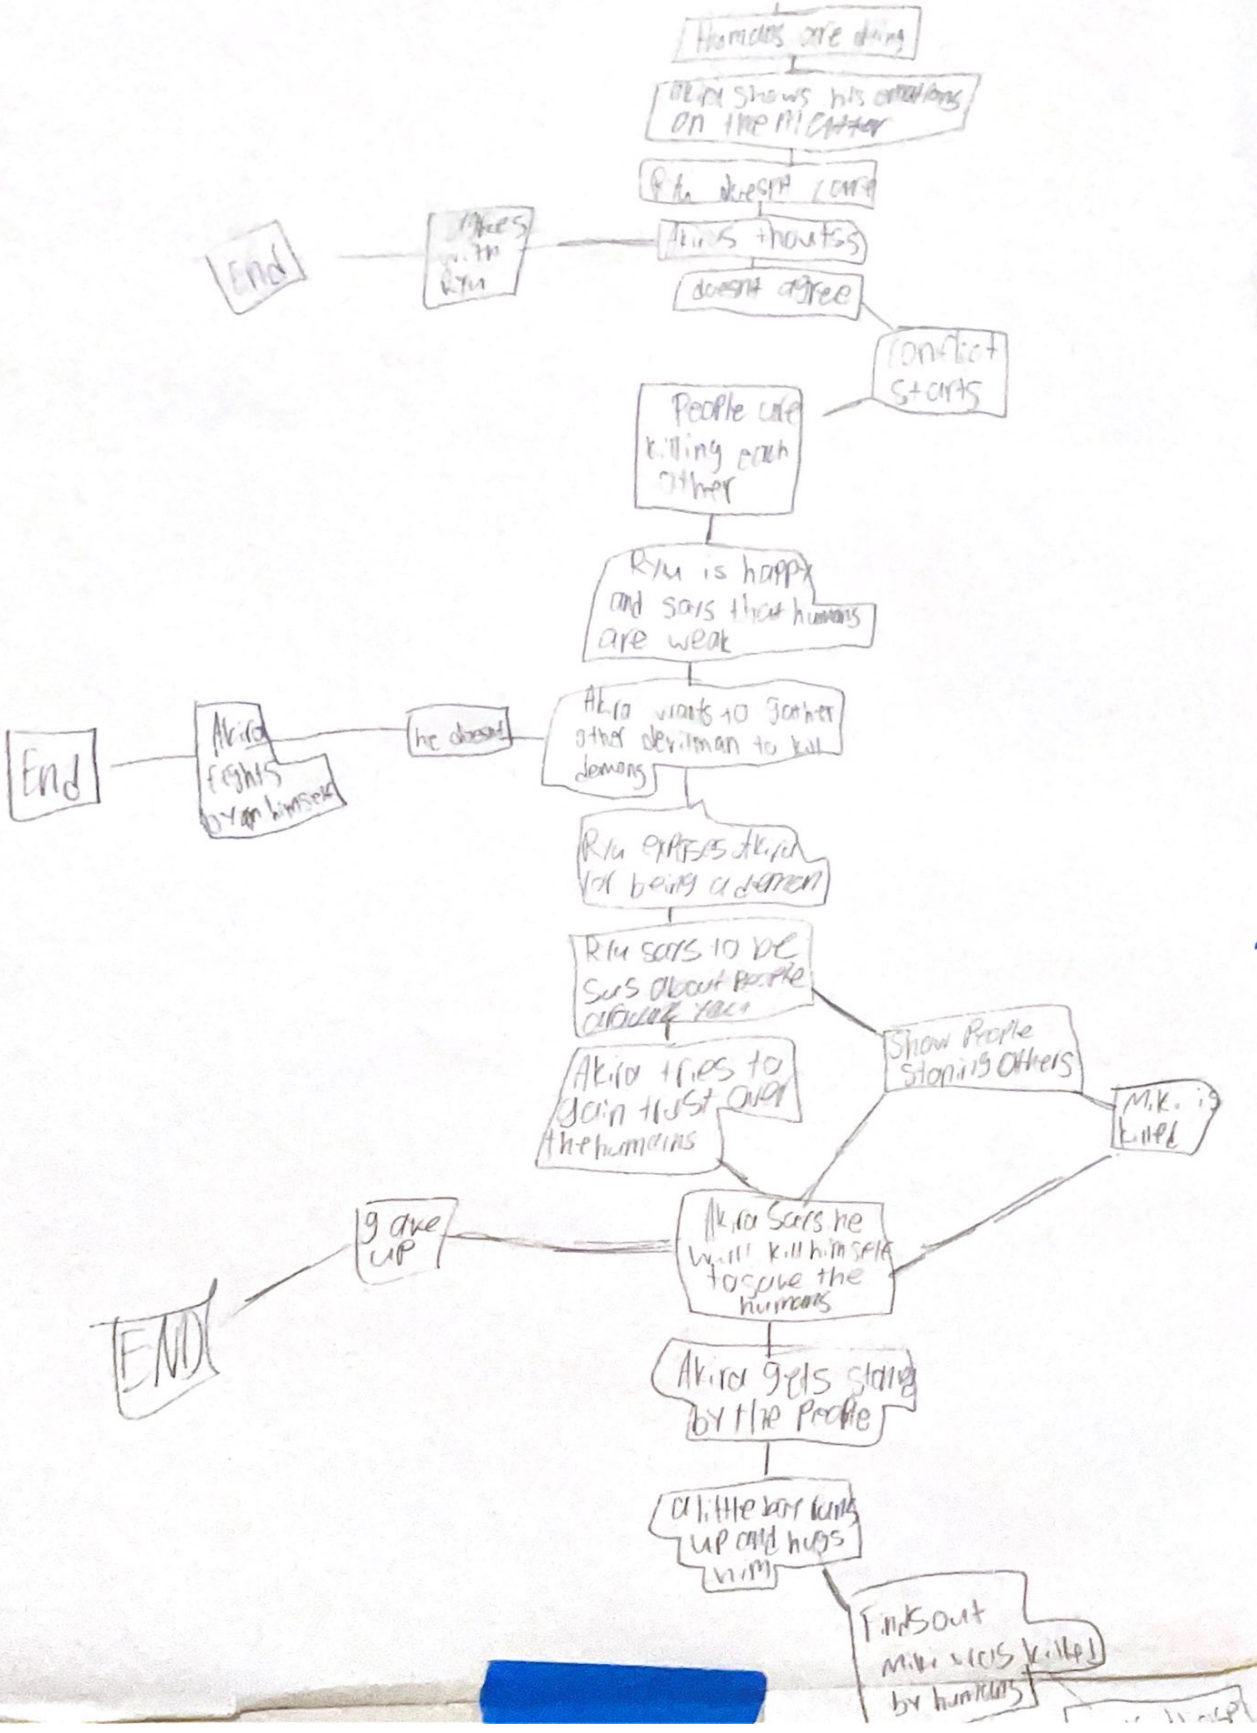 Humans are ding
Akira shows his emotions
on the Matter
Ryu doesnt care
Akiras thoutss
doesnt agree
with
Ryu
End
Conflict
starts
People are
killing each
other
Ryu is happy
and says that humans
are weak
Akira wants to gather
other devilman to kill
demons
he doesnt
Akira
fights
by himself
End
Ryu exposes Akira
for being a demon
Ryu says to be
sus about People
around you
Show People
Stoning Others
Miki is
killed
Akira tries to
gain trust over
the humains
Akira Says he
will kill himself
to save the
humans
gave
up
END
Akira gets stong
by the People
a little boy runs
up and hugs
him
Finds out
Miki was killed
by humans